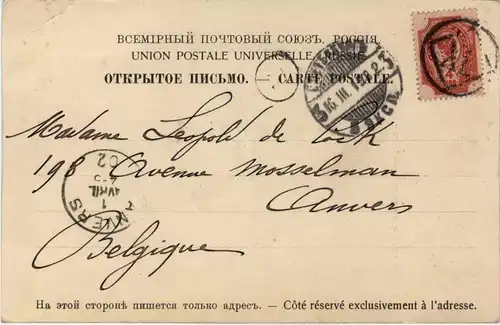 ВСЕМІРНЫЙ ПОЧТОВЫЙ СОЮЗЪ. РОССІЯ.
UNION POSTALE UNIVERSELLE. RUSSIE.
ОТКРЫТОЕ ПИСЬМО. — CARTE POSTALE.
16. III. 1902
3
ЭКСП.
Madame Leopold de Cock
198 Avenue Mosselman
Anvers
Belgique
ANVERS
1
AVRIL
02
На этой сторонѣ пишется только адресъ. — Côté réservé exclusivement à l'adresse.